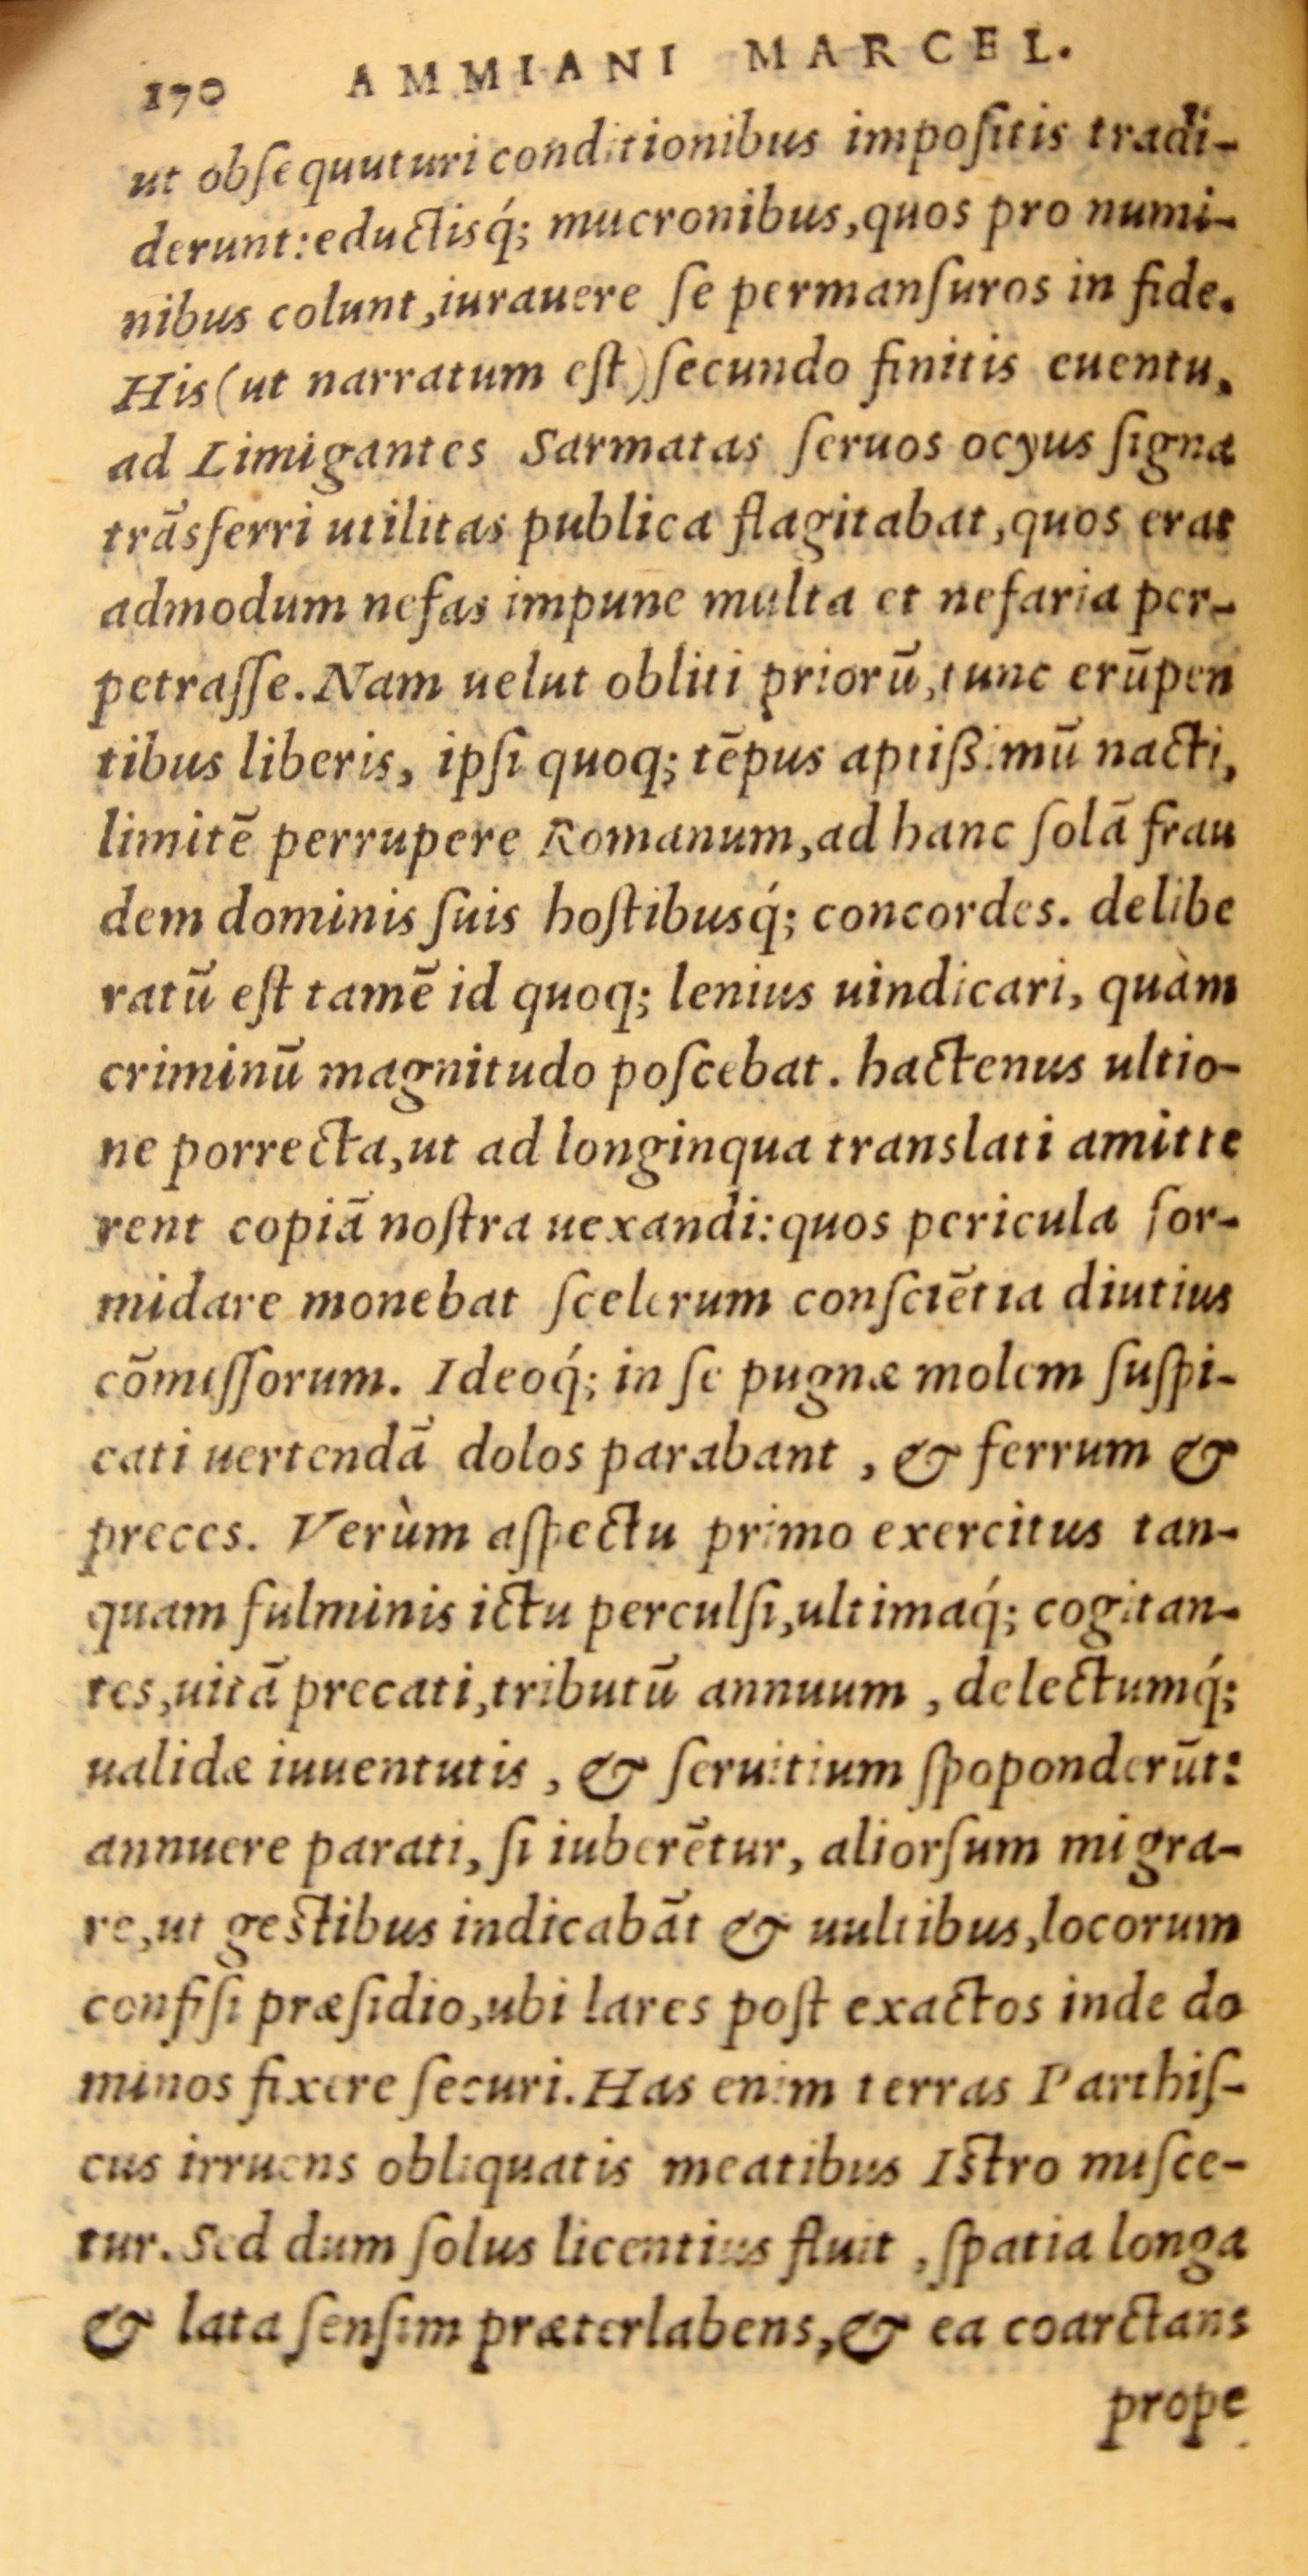 170 AMMIANI MARCEL.
ut obſequuturi conditionibus impoſitis tradi-
derunt: eductisq́; mucronibus, quos pro numi-
nibus colunt, iurauere ſe permanſuros in fide.
His (ut narratum eſt) ſecundo finitis euentu,
ad Limigantes Sarmatas ſeruos ocyus ſigna
trãsferri utilitas publica flagitabat, quos erat
admodum nefas impune multa et nefaria per-
petraſſe. Nam uelut obliti priorũ, tunc erũpen
tibus liberis, ipſi quoq; tẽpus aptißimũ nacti,
limitẽ perrupere Romanum, ad hanc ſolã frau
dem dominis ſuis hoſtibusq́; concordes. delibe
ratũ eſt tamẽ id quoq; lenius uindicari, quàm
criminũ magnitudo poſcebat. hactenus ultio-
ne porrecta, ut ad longinqua translati amitte
rent copiã noſtra uexandi: quos pericula for-
midare monebat ſcelerum conſciẽtia diutius
cõmiſſorum. Ideoq́; in ſe pugnæ molem ſuſpi-
cati uertendã dolos parabant, & ferrum &
preces. Verùm aſpectu primo exercitus tan-
quam fulminis ictu perculſi, ultimaq́; cogitan-
tes, uitã precati, tributũ annuum, delectumq́;
ualidæ iuuentutis, & ſeruitium ſpoponderũt:
annuere parati, ſi iuberẽtur, aliorſum migra-
re, ut geſtibus indicabãt & uultibus, locorum
confiſi præſidio, ubi lares poſt exactos inde do
minos fixere ſecuri. Has enim terras Parthiſ-
cus irruens obliquatis meatibus Iſtro miſce-
tur. Sed dum ſolus licentius fluit, ſpatia longa
& lata ſenſim præterlabens, & ea coarctans
prope